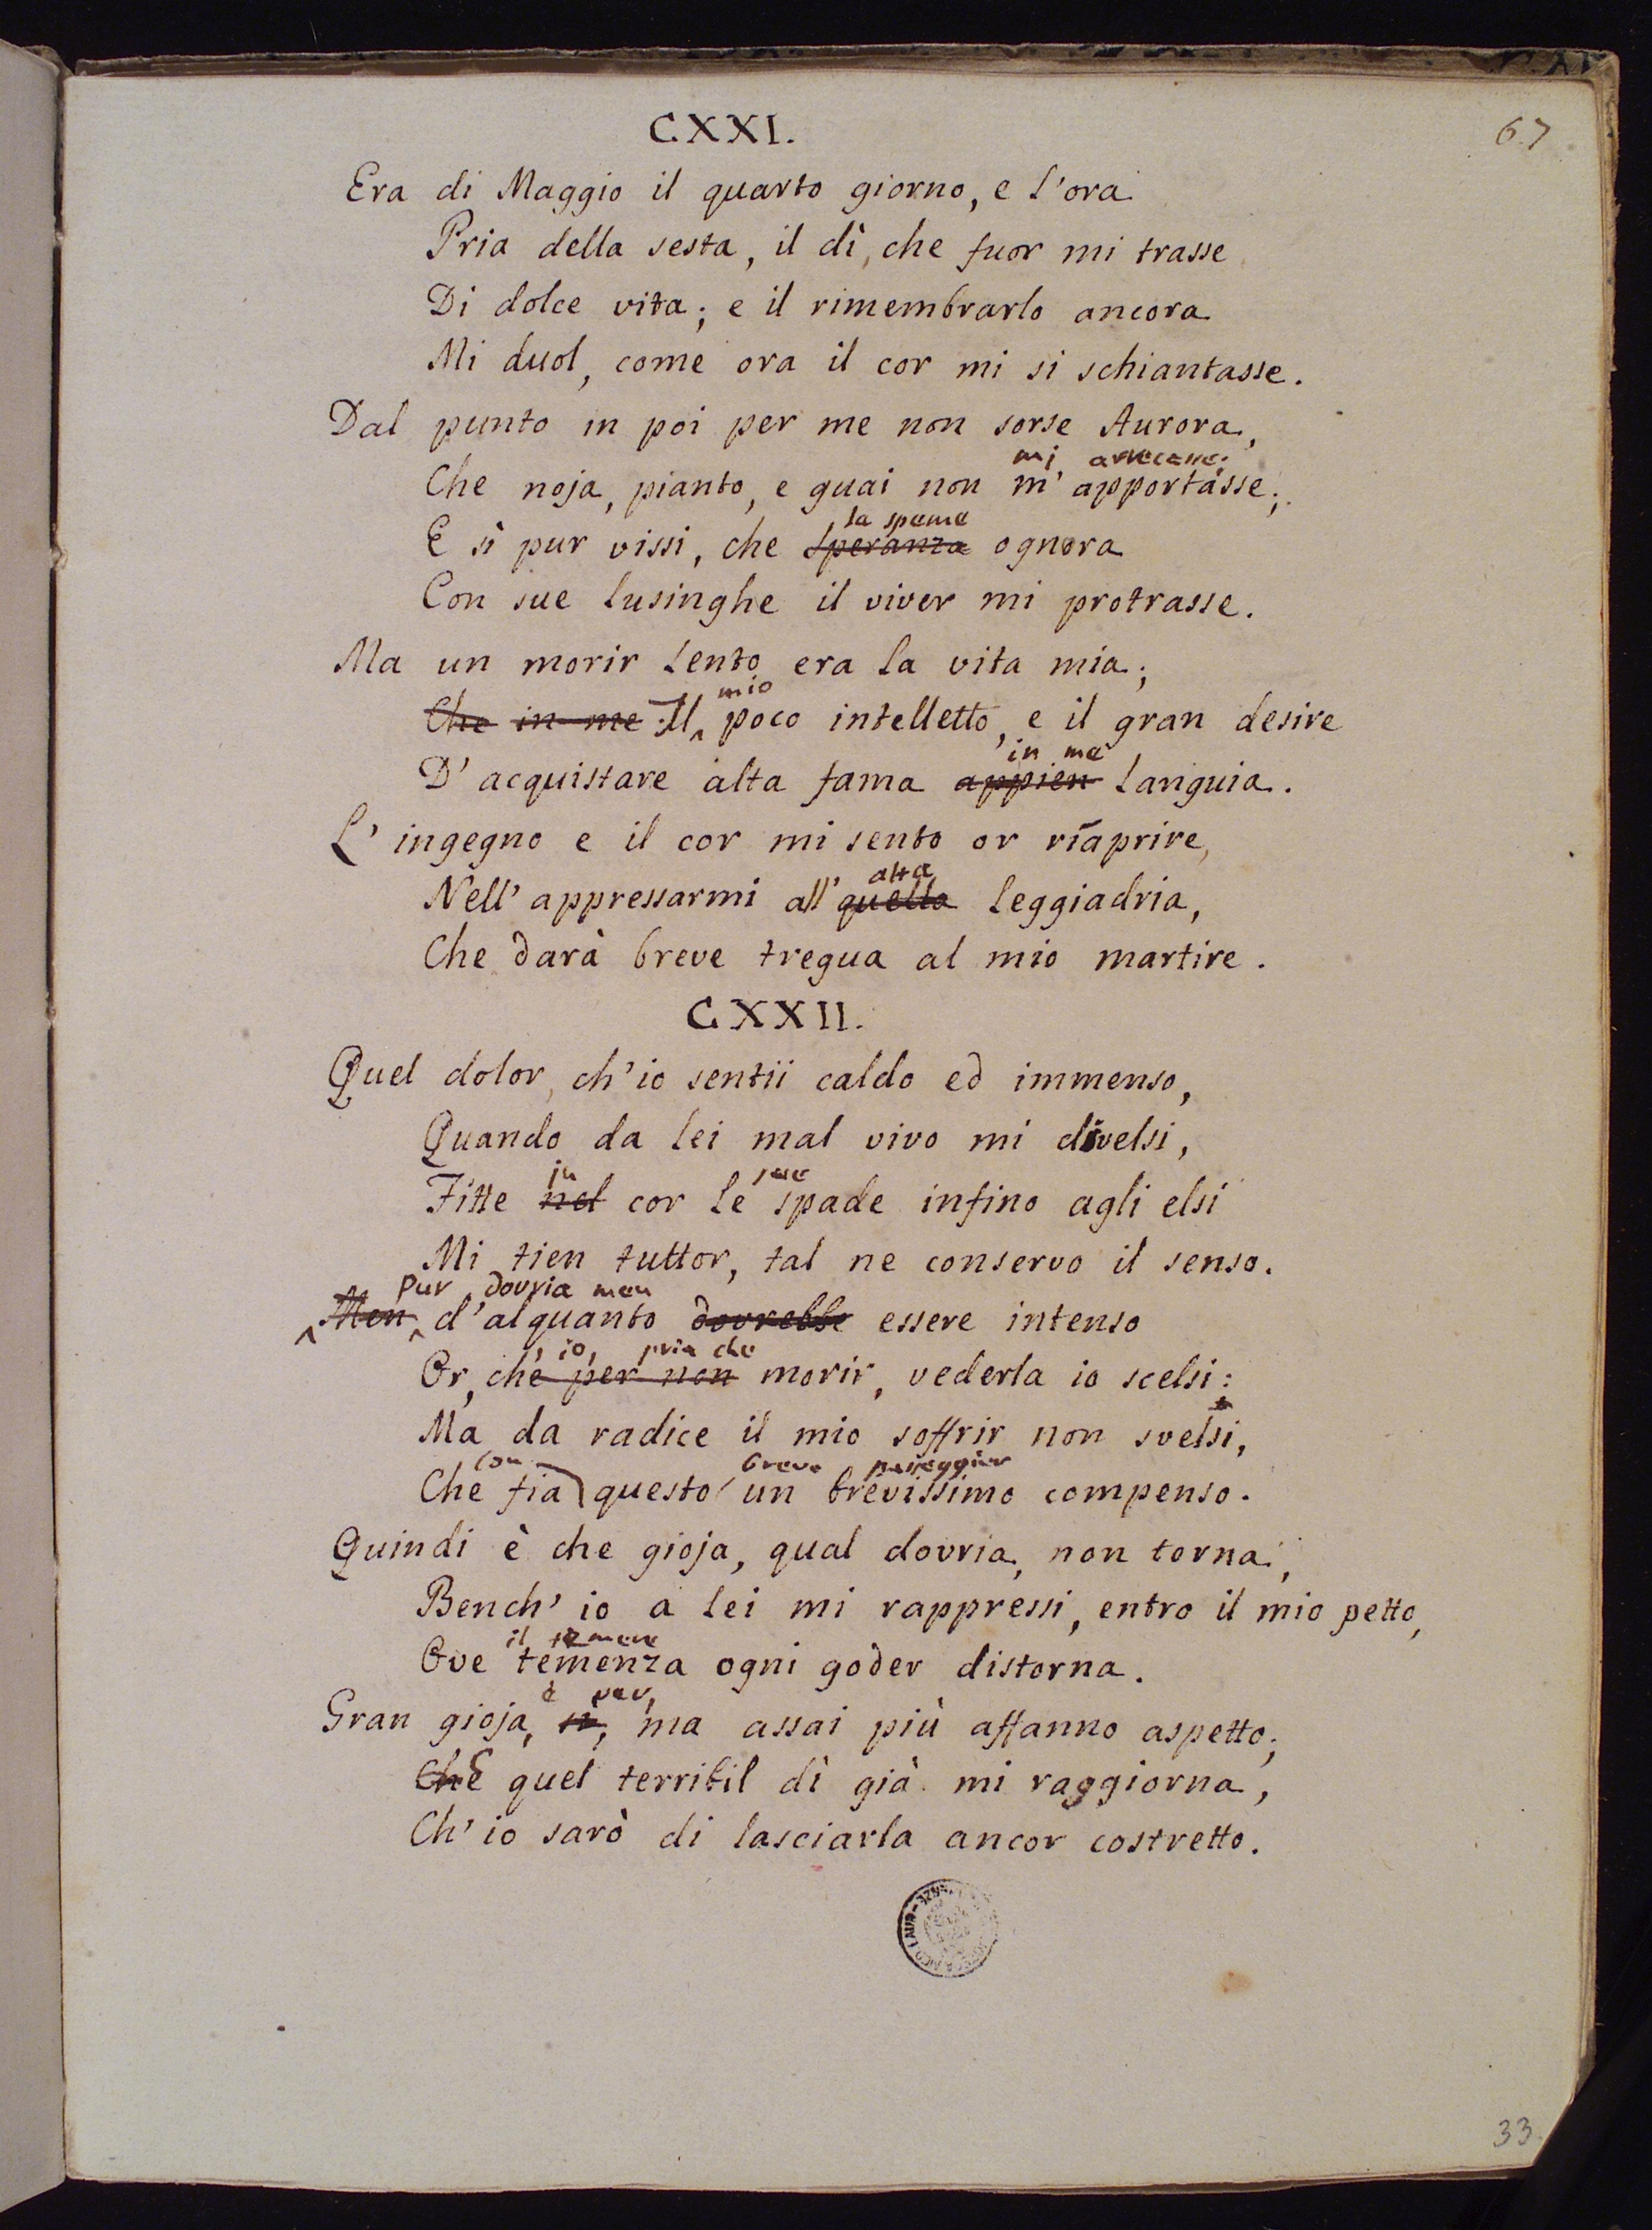 67
CXXI.
Era di Maggio il quarto giorno, e l'ora
Pria della sesta, il dì, che fuor mi trasse
Di dolce vita; e il rimembrarlo ancora
Mi duol, come ora il cor mi si schiantasse.
Dal punto in poi per me non sorse Aurora,
mi arrecasse;
Che noja, pianto, e guai non m'apportasse;
la speme
E sì pur vissi, che speranza ognora
Con sue lusinghe il viver mi protrasse.
Ma un morir lento era la vita mia;
mio
Che in me Il poco intelletto, e il gran desire
in me
D'acquistare alta fama appien languia.
L'ingegno e il cor mi sento or riaprire,
alta
Nell'appressarmi all'quella leggiadria,
Che darà breve tregua al mio martire.
CXXII.
Quel dolor, ch'io sentii caldo ed immenso,
Quando da lei mal vivo mi divelsi,
in sue
Fitte nel cor le spade infino agli elsi
Mi tien tuttor, tal ne conservo il senso.
Pur dovria men
Men d'alquanto dovrebbe essere intenso
io, pria che
Or, che per non morir, vederla io scelsi:
Ma da radice il mio soffrir non svelsi,
Con breve passeggier
Che fia questo un brevissimo compenso.
Quindi è che gioja, qual dovria, non torna,
Bench'io a lei mi rappressi, entro il mio petto,
il temere
Ove temenza ogni goder distorna.
è ver,
Gran gioja, sì, ma assai più affanno aspetto;
Che E quel terribil dì già mi raggiorna,
Ch'io sarò di lasciarla ancor costretto.
33